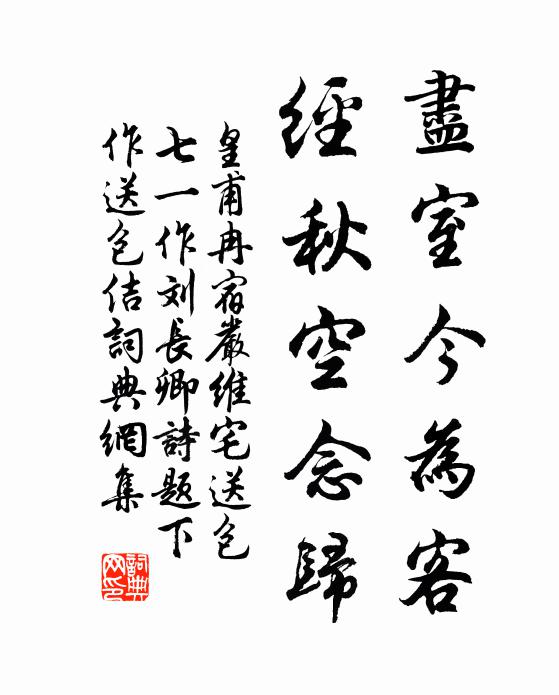 盡室今為客
經秋空念歸
皇甫冉宿嚴維宅送包
七一作刘長卿詩題下
作送包佶詞典網集
詞典
网印